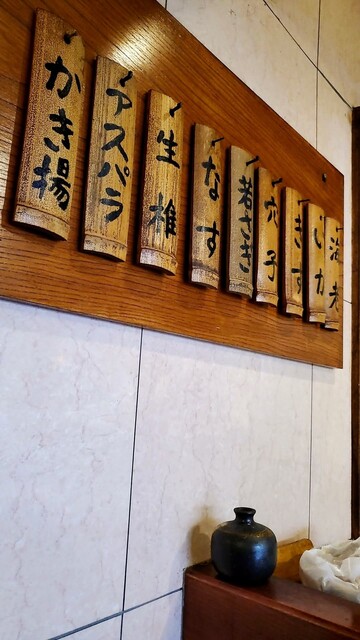 海老
いか
きす
穴子
若さぎ
なす
生椎
アスパラ
かき揚